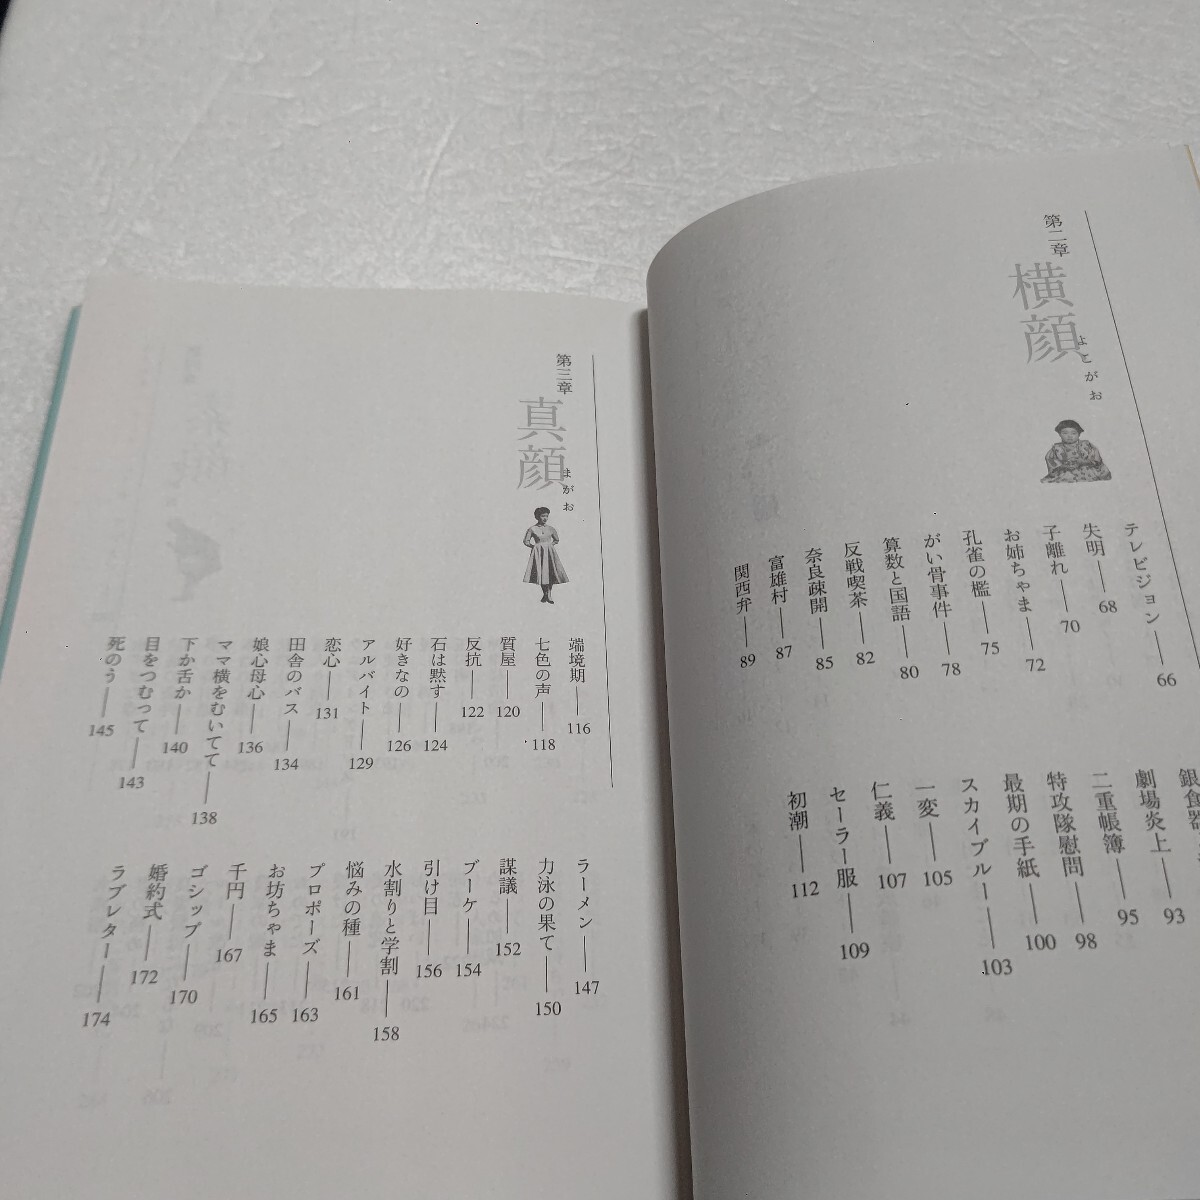 第二章
横顔
よこがお
テレビジョン――66
失明――68
子離れ――70
お姉ちゃま――72
孔雀の檻――75
がい骨事件――78
算数と国語――80
反戦喫茶――82
奈良疎開――85
富雄村――87
関西弁――89
銀食器
劇場炎上――93
二重帳簿――95
特攻隊慰問――98
最期の手紙――100
スカイブルー――103
一変――105
仁義――107
セーラー服――109
初潮――112
第三章
真顔
まがお
端境期――116
七色の声――118
質屋――120
反抗――122
石は黙す――124
好きなの――126
アルバイト――129
恋心――131
田舎のバス――134
娘心母心――136
ママ横をむいてて――138
下か舌か――140
目をつむって――143
死のう――145
ラーメン――147
力泳の果て――150
謀議――152
ブーケ――154
引け目――156
水割りと学割――158
悩みの種――161
プロポーズ――163
お坊ちゃま――165
千円――167
ゴシップ――170
婚約式――172
ラブレター――174